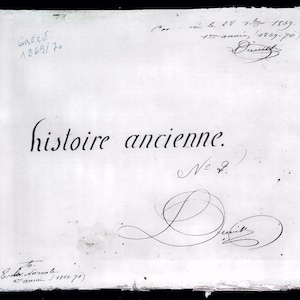 GRECE
1869/70
le 28 1869
1ère année (1869-70)
histoire ancienne.
No 2.
Ecole Normale
1ère année (1869-70)